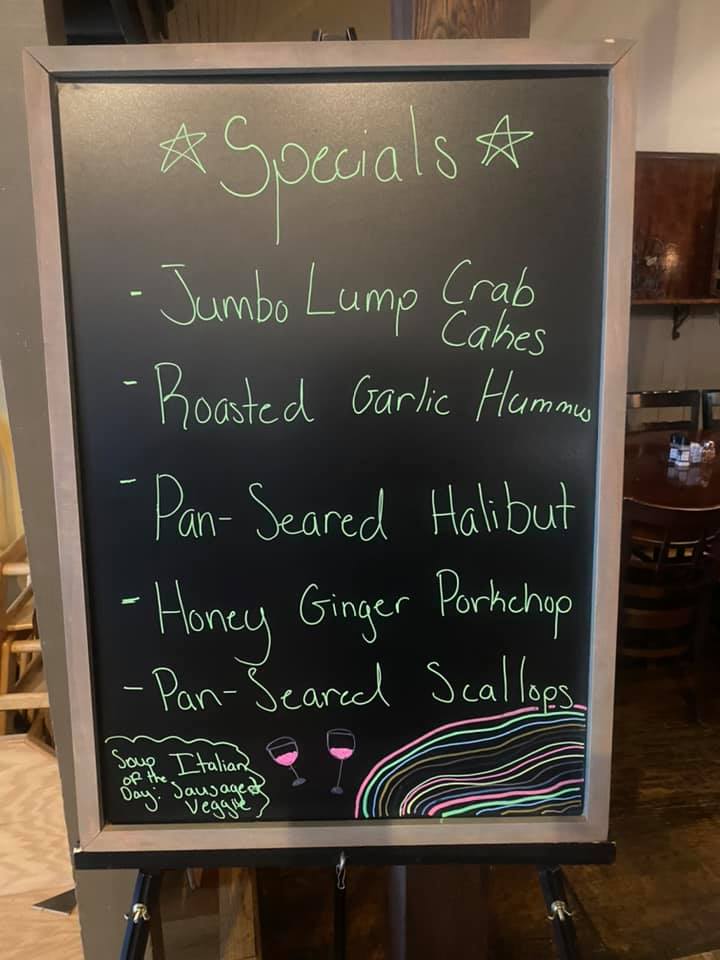 Specials
- Jumbo Lump Crab
Cakes
- Roasted Garlic Hummus
- Pan-Seared Halibut
- Honey Ginger Porkchop
- Pan-Seared Scallops
Soup of the Day: Italian Sausage & Veggie